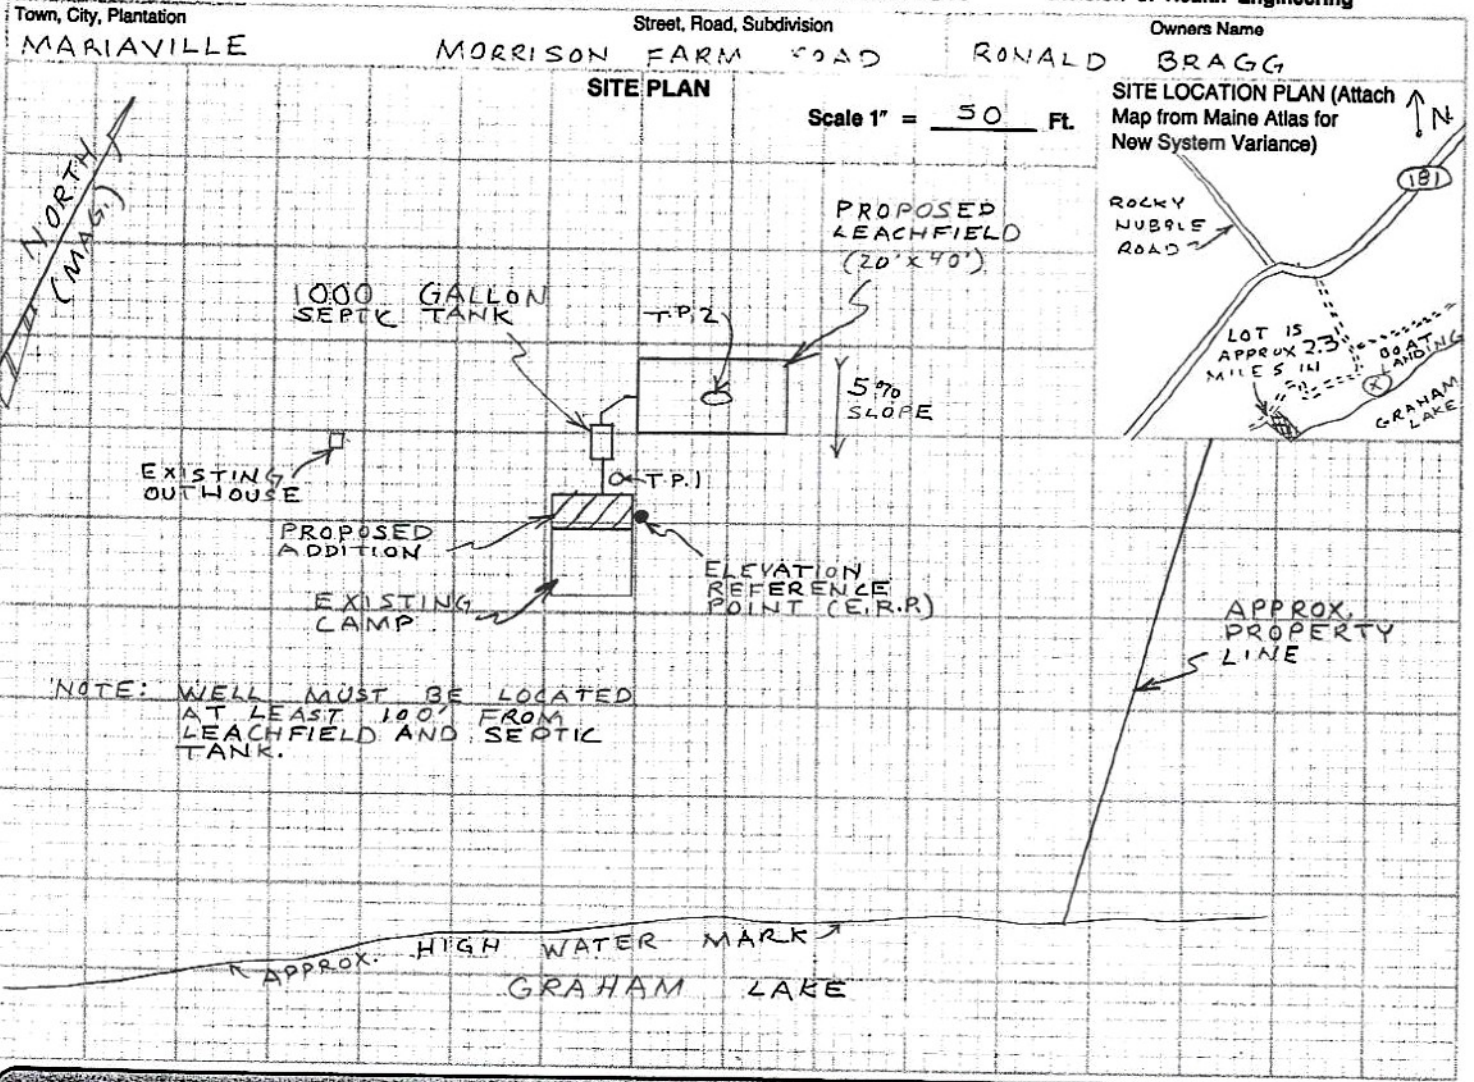 Health Engineering
Town, City, Plantation
Street, Road, Subdivision
Owners Name
MARIAVILLE
MORRISON FARM ROAD
RONALD BRAGG
SITE PLAN
Scale 1" = 50 Ft.
SITE LOCATION PLAN (Attach
Map from Maine Atlas for
New System Variance)
N
NORTH
(MAG.)
181
ROCKY
NUBBLE
ROAD
LOT IS
APPROX 2.3
MILES IN
BOAT
LANDING
X
GRAHAM
LAKE
PROPOSED
LEACHFIELD
(20' X 40')
1000 GALLON
SEPTIC TANK
T.P.2
5%
SLOPE
EXISTING
OUTHOUSE
T.P.1
PROPOSED
ADDITION
ELEVATION
REFERENCE
POINT (E.R.P.)
EXISTING
CAMP
APPROX.
PROPERTY
LINE
NOTE: WELL MUST BE LOCATED
AT LEAST 100' FROM
LEACHFIELD AND SEPTIC
TANK.
APPROX. HIGH WATER MARK
GRAHAM LAKE